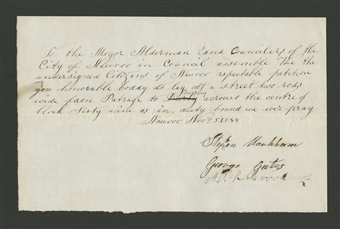 To the Mayor Alderman and Councilers of the
City of Nauvoo in Council assemble the the
undersigned Citizens of Nauvoo respectable petition
you honorable boddy to lay off a street two rods
wide from to accrosst the centre of
block Sixty nine as in duty bound we wir pray
Nauvoo Nov 5 1844
Stephen Markham
George